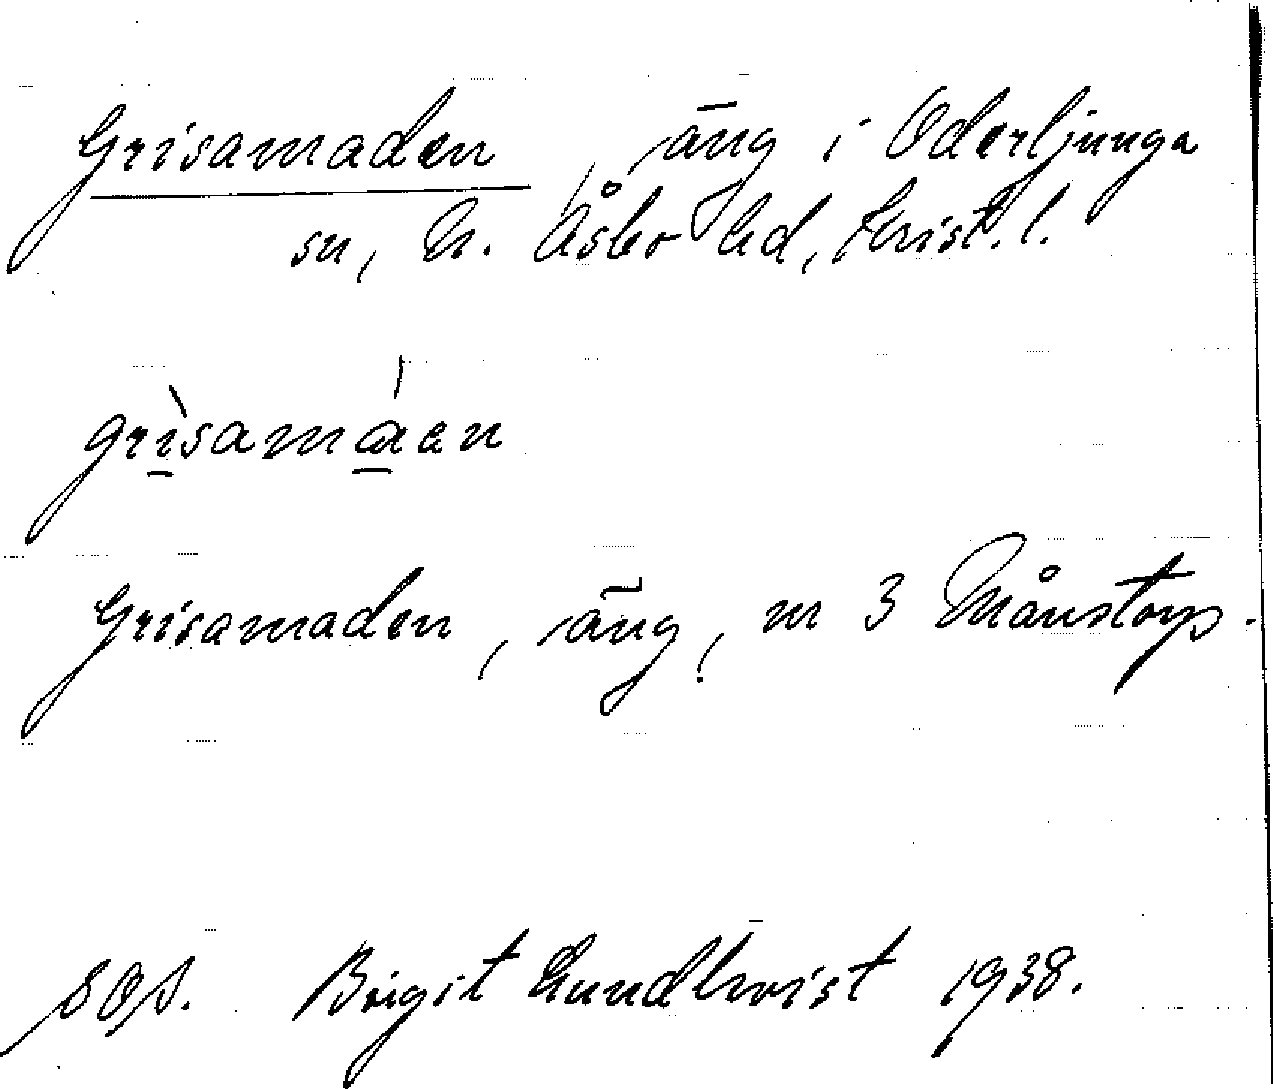 Grisamaden, äng i Oderljunga
sn, N. Åsbo hd, Krist. l.
grìsamáen
Grisamaden, äng, nr 3 Månstorp.
SOA. Birgit Lundkvist 1938.